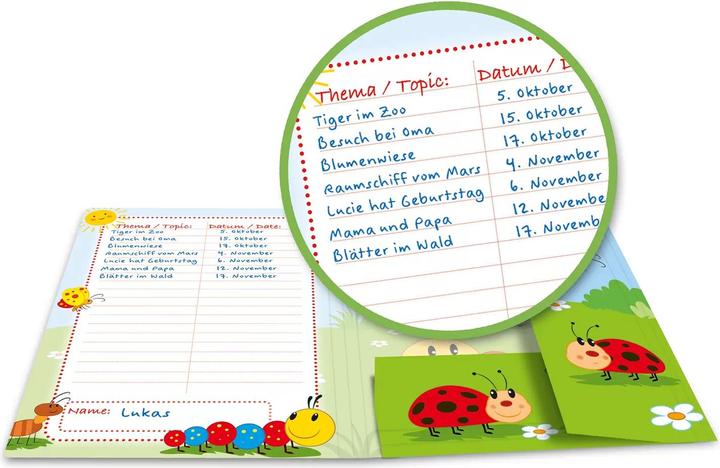 Thema / Topic: Datum / D
Tiger im Zoo 5. Oktober
Besuch bei Oma 15. Oktober
Blumenwiese 17. Oktober
Raumschiff vom Mars 4. November
Lucie hat Geburtstag 6. November
Mama und Papa 12. November
Blätter im Wald 17. Novemb
Thema / Topic: Datum / Date:
Tiger im Zoo 5. Oktober
Besuch bei Oma 15. Oktober
Blumenwiese 17. Oktober
Raumschiff vom Mars 4. November
Lucie hat Geburtstag 6. November
Mama und Papa 12. November
Blätter im Wald 17. November
Name: Lukas